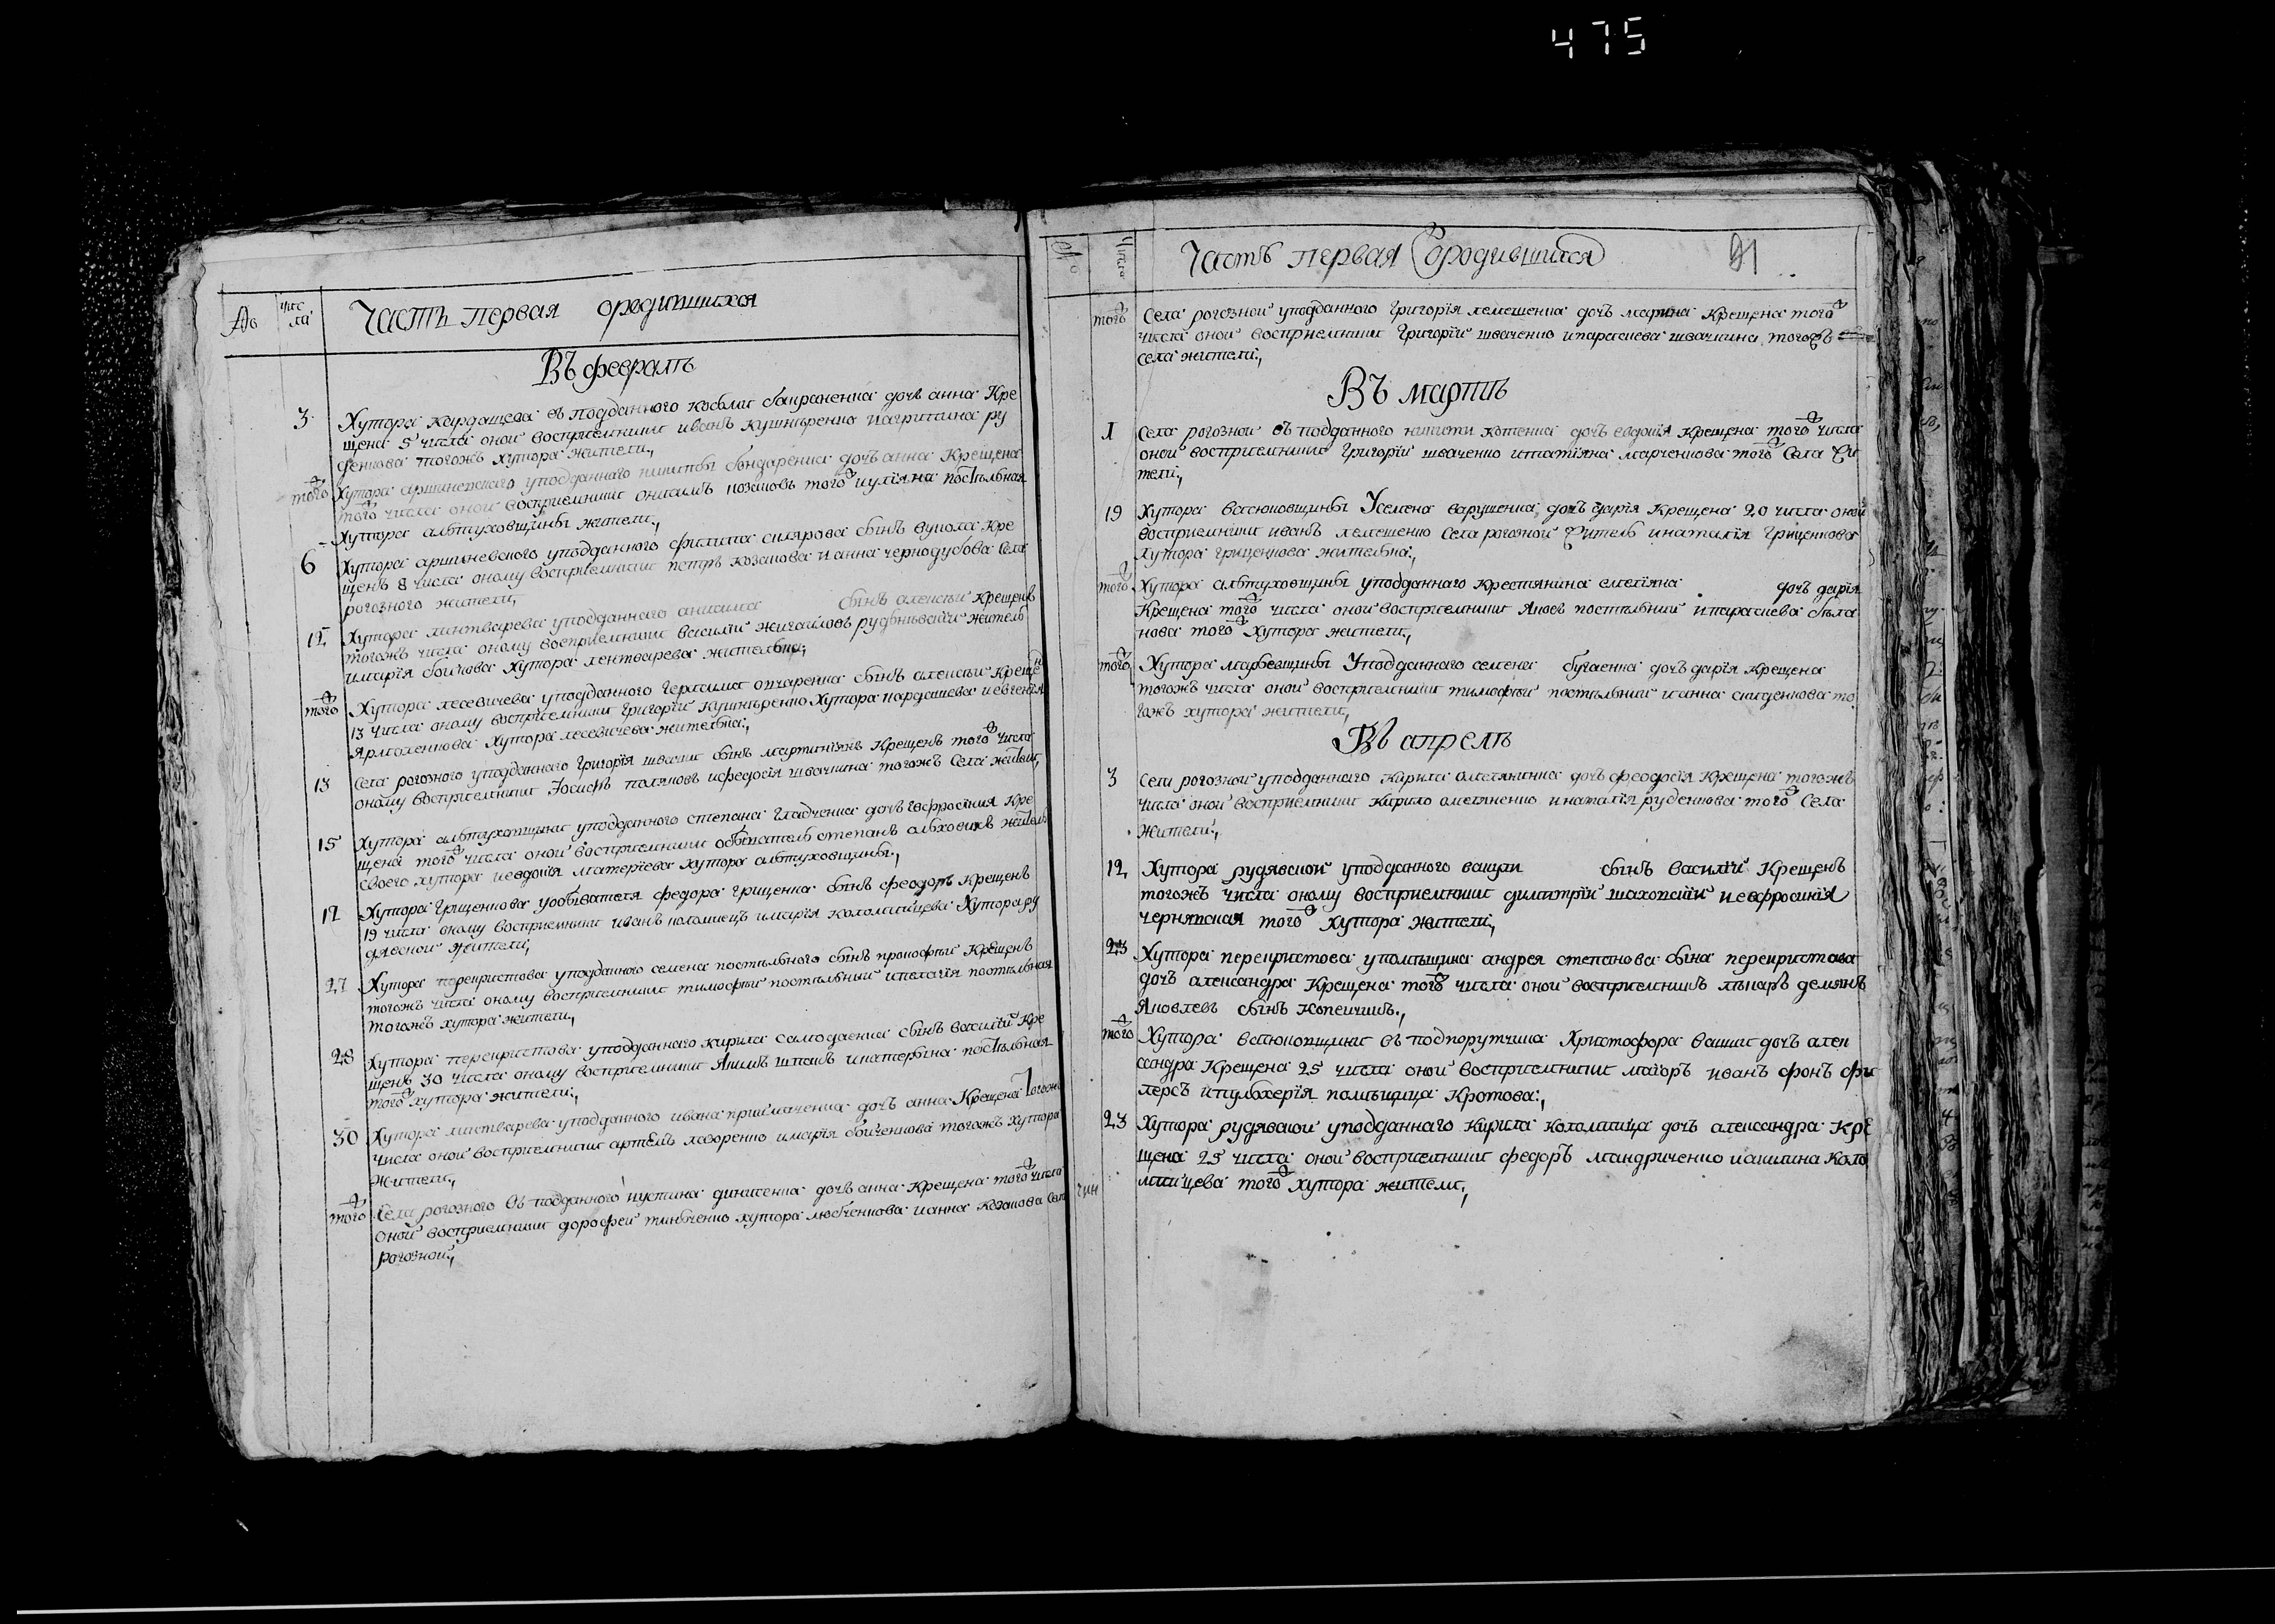 475
№ чис ла Часть первая ородившихся
Въ февралѣ
3 Хутора Кардашева въ подданного Космы дочь анна Кре
щена 5 числа оной восприемники иванъ Кушнѣренко ру
денкова тогожъ хутора жители,
того Хутора аршиневского уподданного никиты бондаренка дочь анна Крещена
того числа оной восприемники онисимъ козаковъ того иулiяна постѣльная
Хутора алтуховщины жители,
6 Хутора аршиневского уподданного филипа склярова сынъ вукола Кре
щенъ 8 числа оному восприемники петръ козакова и анна чернодубова Села
рогозного жители,
12 Хутора линтварева уподданного анисима сынъ алексѣй Крещенъ
тогожъ числа оному восприемники василiй жигайловъ житель
имарiя бойкова Хутора лентварева жителька,
того Хутора лесевичева уподданного Герасима овчаренка сынъ алексѣй Креще
13 числа оному восприемники григорiй Кушнѣренко Хутора кардашева иевгенiя
Ярмоленкова Хутора лесевичева жителька,
13 Села рогозного уподданного Григорiя швачки сынъ мартинiянъ Крещенъ того числа
оному восприемники Iосифъ поляковъ ифедосiя швачкина тогожъ Села жители,
15 Хутора алтуховщини уподданного степана Гладченка дочь Iевфросiния Кре
щена того числа оной восприемники обыватель степанъ житель
своего хутора иевдокiя матерiева хутора алтуховщины,
17 Хутора Грищенкова уобывателя федора грищенка сынъ феодоръ Крещенъ
19 числа оному восприемники иванъ коломиецъ имарiя коломийцева Хутора ру
дявской жители,
27 Хутора перекристова уподданного семена постѣльного сынъ прокофiй Крещенъ
тогожъ числа оному восприемники тимофiй постѣльный ипелагiя постѣльная
тогожъ хутора жители,
28 Хутора перекристова уподданного кирила самодаенка сынъ василiй Кре
щенъ 30 числа оному восприемники Якимъ шпакъ икатерѣна постѣльная
того хутора жители,
30 Хутора линтварева уподданного ивана приймаченка дочь анна Крещена Тогожъ
числа оной восприемники артемъ лазоренко имарiя бойченкова тогожъ Хутора
жители,
того Села рогозного въ подданного иустина диниченка дочь анна Крещена того числа
оной восприемники дорофей тимченко хутора любченкова ианна Козакова Села
рогозной,
№ Число Часть первая ородившихся 91
того Села рогозной уподданного Григорiя лемешенка дочь марина Крещена того
числа оной восприемники Григорiй шваченко ипараскева швачкина тогожъ
села жители,
Въ мартѣ
1 Села рогозной въ подданного никити котенка дочь евдокiя Крещена того числа
оной восприемники Григорiй шваченко итатiяна марченкова того Села жи
тели,
19 Хутора васюковщины Усемена варушенка дочь дарiя Крещена 20 числа оной
восприемники иванъ лемешенко Села рогозной житель инаталiя Грищенкова
хутора грищенкова жителька,
того Хутора алтуховщины уподданнаго Крестянина емелiяна дочь дарiя
Крещена того числа оной восприемники Яковъ постѣльный ипараскева была
кова того Хутора жители,
того Хутора Уподданнаго семена бугаенка дочь дарiя Крещена
тогожъ числа оной восприемники тимофiй постѣльный ианна скиденкова то
гожъ хутора жители,
Въ апрелѣ
3 Села рогозной уподданнаго Кирила омелянкина дочь феодосiя Крещена тогожъ
числа оной восприемники Кирило омеляненко инаталiя руденкова того Села
жители,
12 Хутора рудявской уподданного вакули сынъ василiй Крещенъ
тогожъ числа оному восприемники димитрiй шаховскiй иевфросинiя
чернявская того Хутора жители,
23 Хутора перекристова упомѣщика андрея степанова сына перекристова
дочь александра Крещена того числа оной восприемникъ лѣкарь демянъ
Яковлевъ сынъ Копейчикъ,
того Хутора васюковщини въ подпорутчика Христофора дочь алек
сандра Крещена 25 числа оной восприемники маiоръ иванъ фонъ фи
леръ ипулхерiя помѣщица Кротова,
23 Хутора рудявской уподданнаго Кирила Коломийца дочь александра Кре
щена 25 числа оной восприемники федоръ мандриченко иакилина Коло
мийцева того хутора жители,